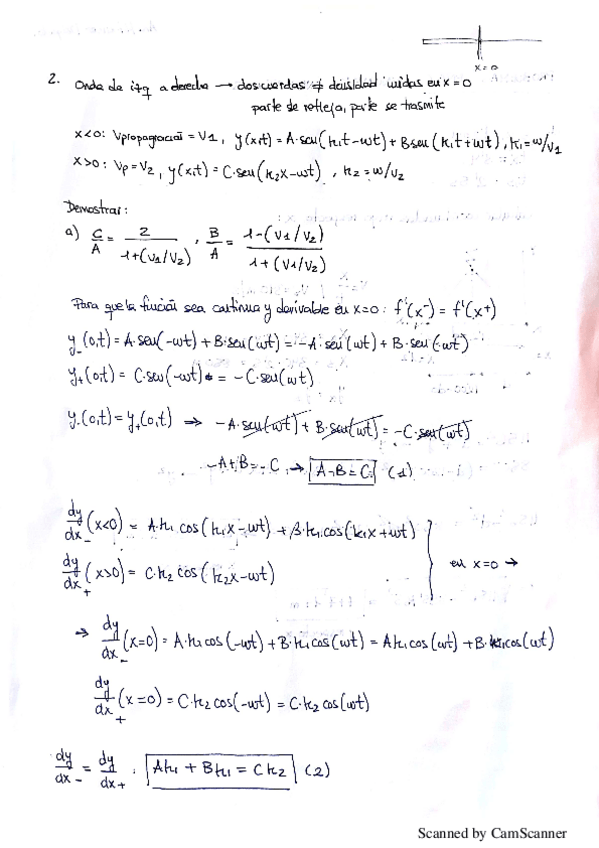 x=0
2. Onda de izq a derecha → dos cuerdas ≠ densidad unidas en x=0
parte se refleja, parte se trasmite
x<0: Vpropagración = V1, y(x,t) = A·seu(k₁t-wt) + B seu(k₁t+wt), k₁=w/v₁
x>0: Vp = V₂, y(x,t) = C·seu(k₂x-wt), k₂ = w/v₂
Demostrar:
a) C/A = 2/(1+(V1/V₂)), B/A = (1-(V1/V₂))/(1+(V1/V₂))
Para que la función sea continua y derivable en x=0: f'(x⁻) = f'(x⁺)
y₋(0,t) = A·seu(-wt) + B·seu(wt) = -A·seu(wt) + B·seu(wt)
y₊(0,t) = C·seu(-wt) = -C·seu(wt)
y₋(0,t) = y₊(0,t) ⇒ -A·seu(wt) + B·seu(wt) = -C·seu(wt)
-A+B=-C → A-B=C (1)
dy/dx₋ (x<0) = A·k₁ cos(k₁x-wt) + B·k₁ cos(k₁x+wt)
dy/dx₊ (x>0) = C·k₂ cos(k₂x-wt)
en x=0 →
→ dy/dx₋ (x=0) = A·k₁ cos(-wt) + B·k₁ cos(wt) = Ak₁ cos(wt) + B·k₁cos(wt)
dy/dx₊ (x=0) = C·k₂ cos(-wt) = C·k₂ cos(wt)
dy/dx₋ = dy/dx₊ · Ak₁ + Bk₁ = Ck₂ (2)
Scanned by CamScanner